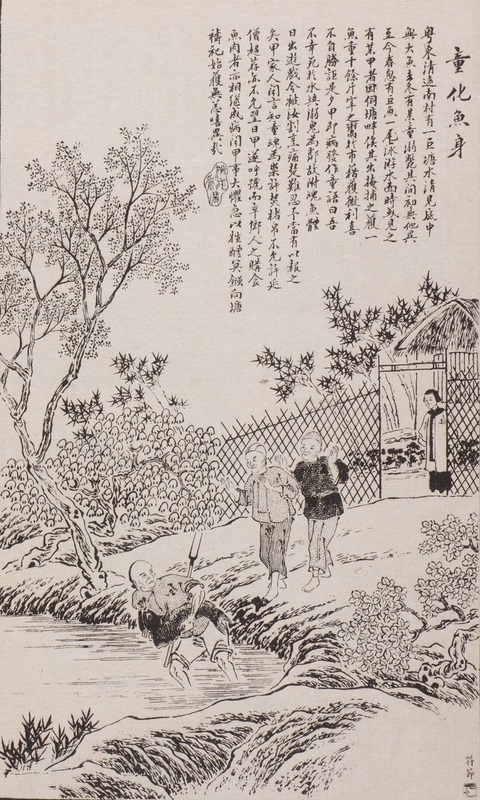 童化魚身
粵東清遠南村有一巨塘水清見底中
無大魚去冬有某童溺斃其間初無他異
至今春忽有巨魚一尾泳游水面時或見之
有某甲者因伺塘畔俟其出掩捕之獲一
魚重十餘斤宰之鬻於市藉獲微利喜
不自勝詎是夕甲即病發作童語曰吾
不幸死於水與溺鬼為鄰故附魂魚體
日出遊戲今被汝割烹痛楚難忍不當有以報之
矣甲家人聞言知童魂為祟許焚楮帛不允許延
僧超薦亦不允翌日甲遂呼號而卒鄉人之購食
魚肉者亦相繼成病聞甲事大懼急以牲醴冥鏹向塘
禱祀始獲無恙噫異哉
符節